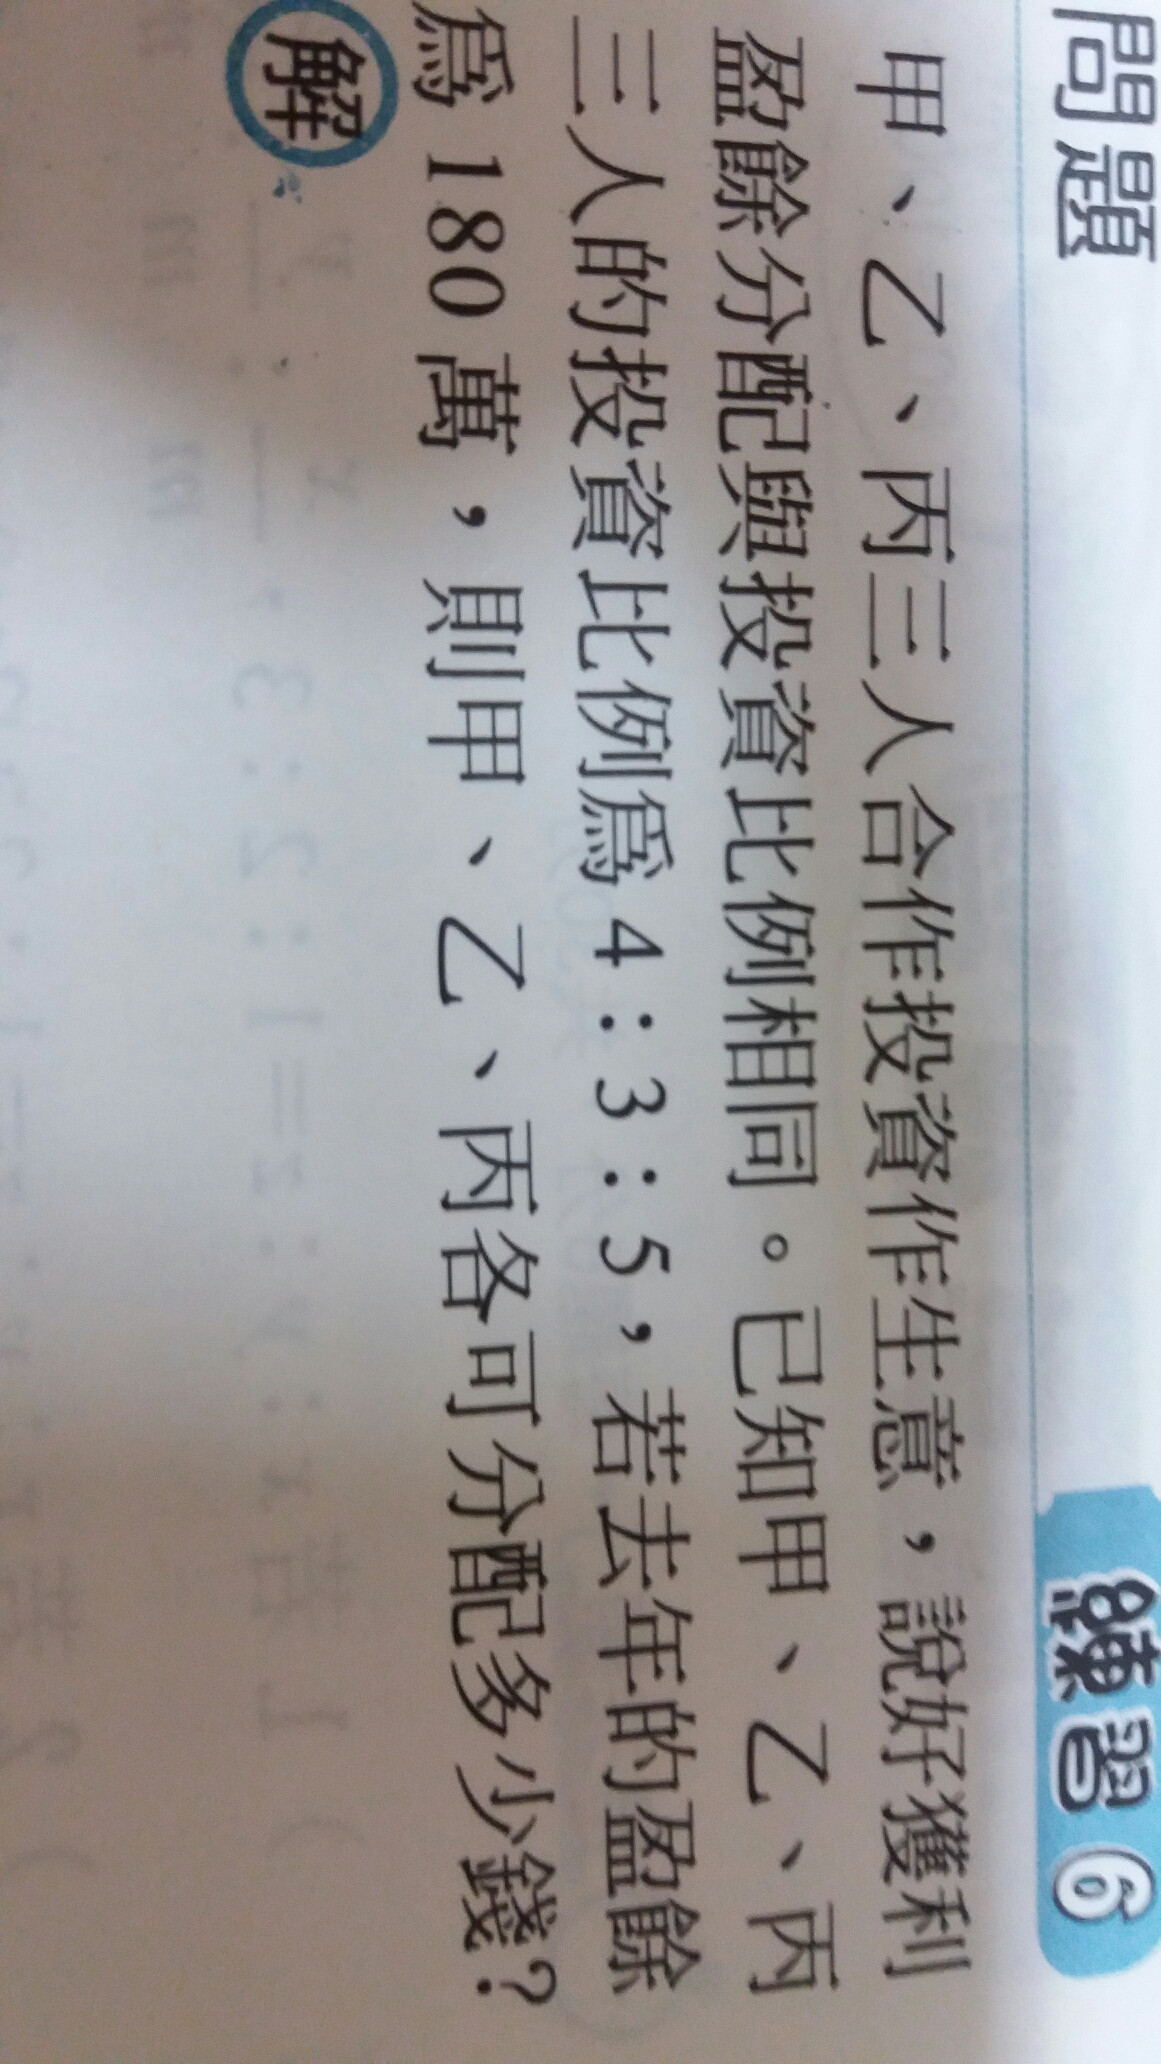 問題
練習6
甲、乙、丙三人合作投資作生意，說好獲利
盈餘分配與投資比例相同。已知甲、乙、丙
三人的投資比例為4：3：5，若去年的盈餘
為180萬，則甲、乙、丙各可分配多少錢？
解